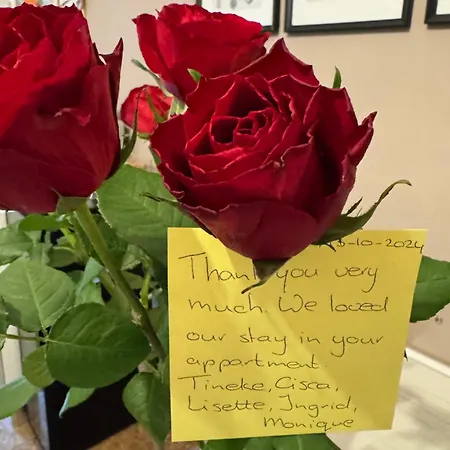 3-10-2024
Thank you very
much. We loved
our stay in your
appartment
Tineke, Cisca,
Lisette, Ingrid,
Monique